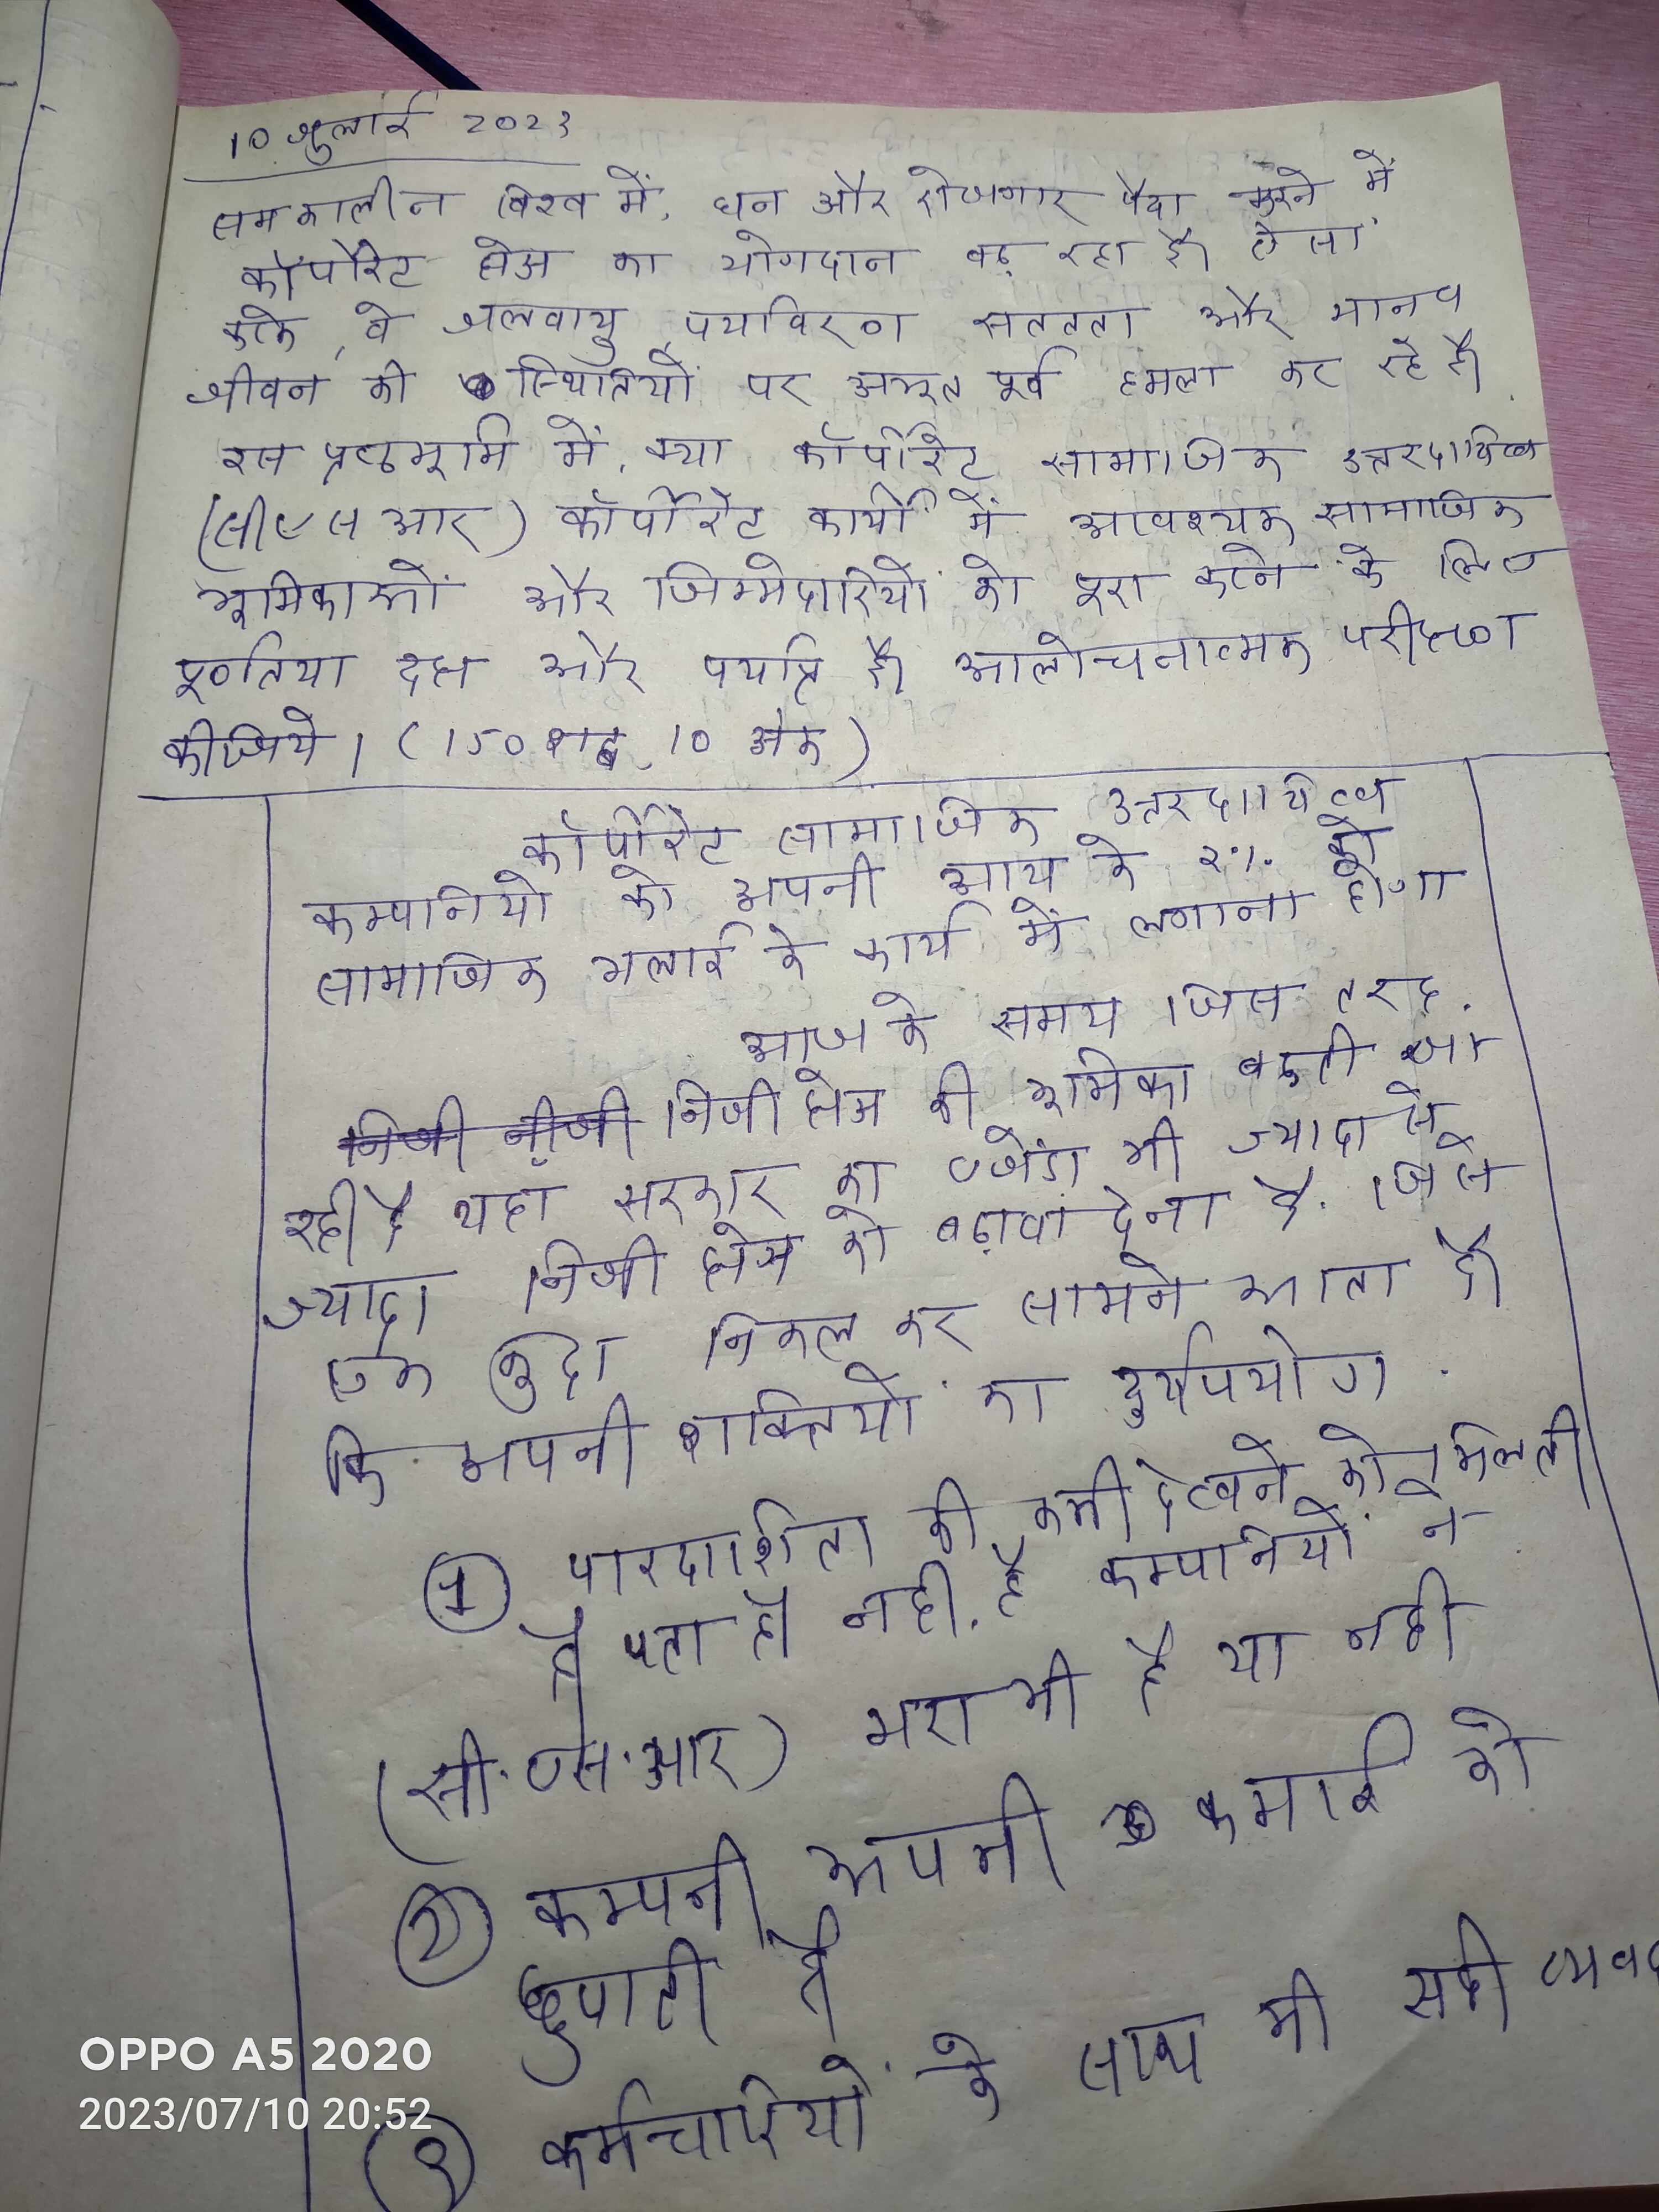 10 जुलाई 2023
समकालीन विश्व में, धन और रोजगार पैदा करने में
कॉर्पोरेट क्षेत्र का योगदान बढ़ रहा है। ऐसा
करके, वे जलवायु, पर्यावरण सततता और मानव
जीवन की स्थितियों पर अभूत पूर्व हमला कर रहे है।
इस प्रष्ठभूमि में, क्या कॉर्पोरेट सामाजिक उत्तरदायित्व
(सीएसआर) कॉर्पोरेट कार्यो में आवश्यक सामाजिक
भूमिकाओं और जिम्मेदारियों को पूरा करने के लिए
पूर्णतया दक्ष और पर्याप्त है। आलोचनात्मक परीक्षण
कीजिये। (150 शब्द, 10 अंक)
कॉर्पोरेट सामाजिक उत्तरदायित्व
कम्पनियो को अपनी आय के 2% को
सामाजिक भलाई के कार्य में लगाना होगा
आज के समय जिस तरह
निजी नीजी निजी क्षेत्र की भूमिका बढ़ती जा
रही है यहाँ सरकार का एजेंडा भी ज्यादा से
ज्यादा निजी क्षेत्र को बढ़ावा देना है. जिसे
एक मुद्दा निकल कर सामने आता है।
कि अपनी शक्तियों का दुर्यपयोग.
1 पारदार्शिता की कमी देखने को मिलती
है पता ही नही. है कम्पनियों ने
(सी.एस.आर) भरा भी है या नही
2 कम्पनी अपनी कमाई को
छुपाती है
3 कर्मचारियों के साथ भी सही व्यवह
OPPO A5 2020
2023/07/10 20:52